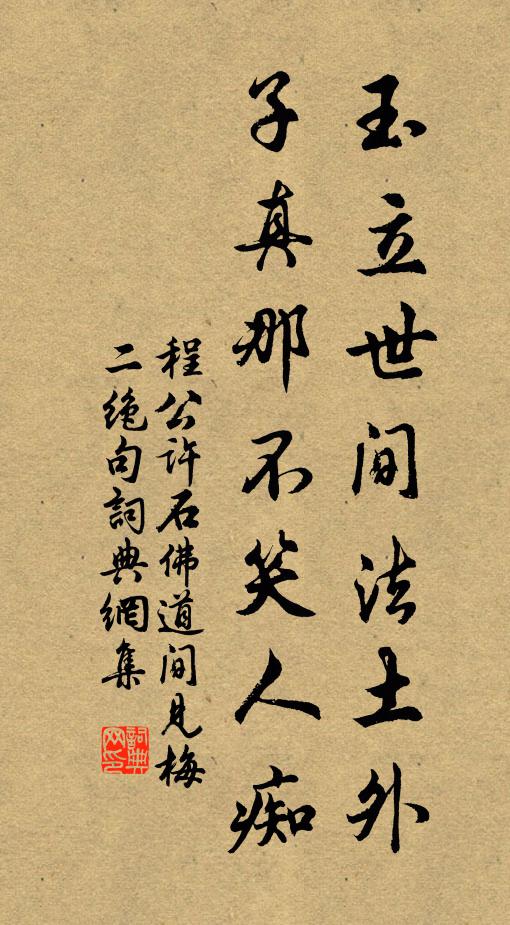 玉立世间法土外
子真那不笑人痴
程公许石佛道间见梅
二绝句詞典網集
詞典网印